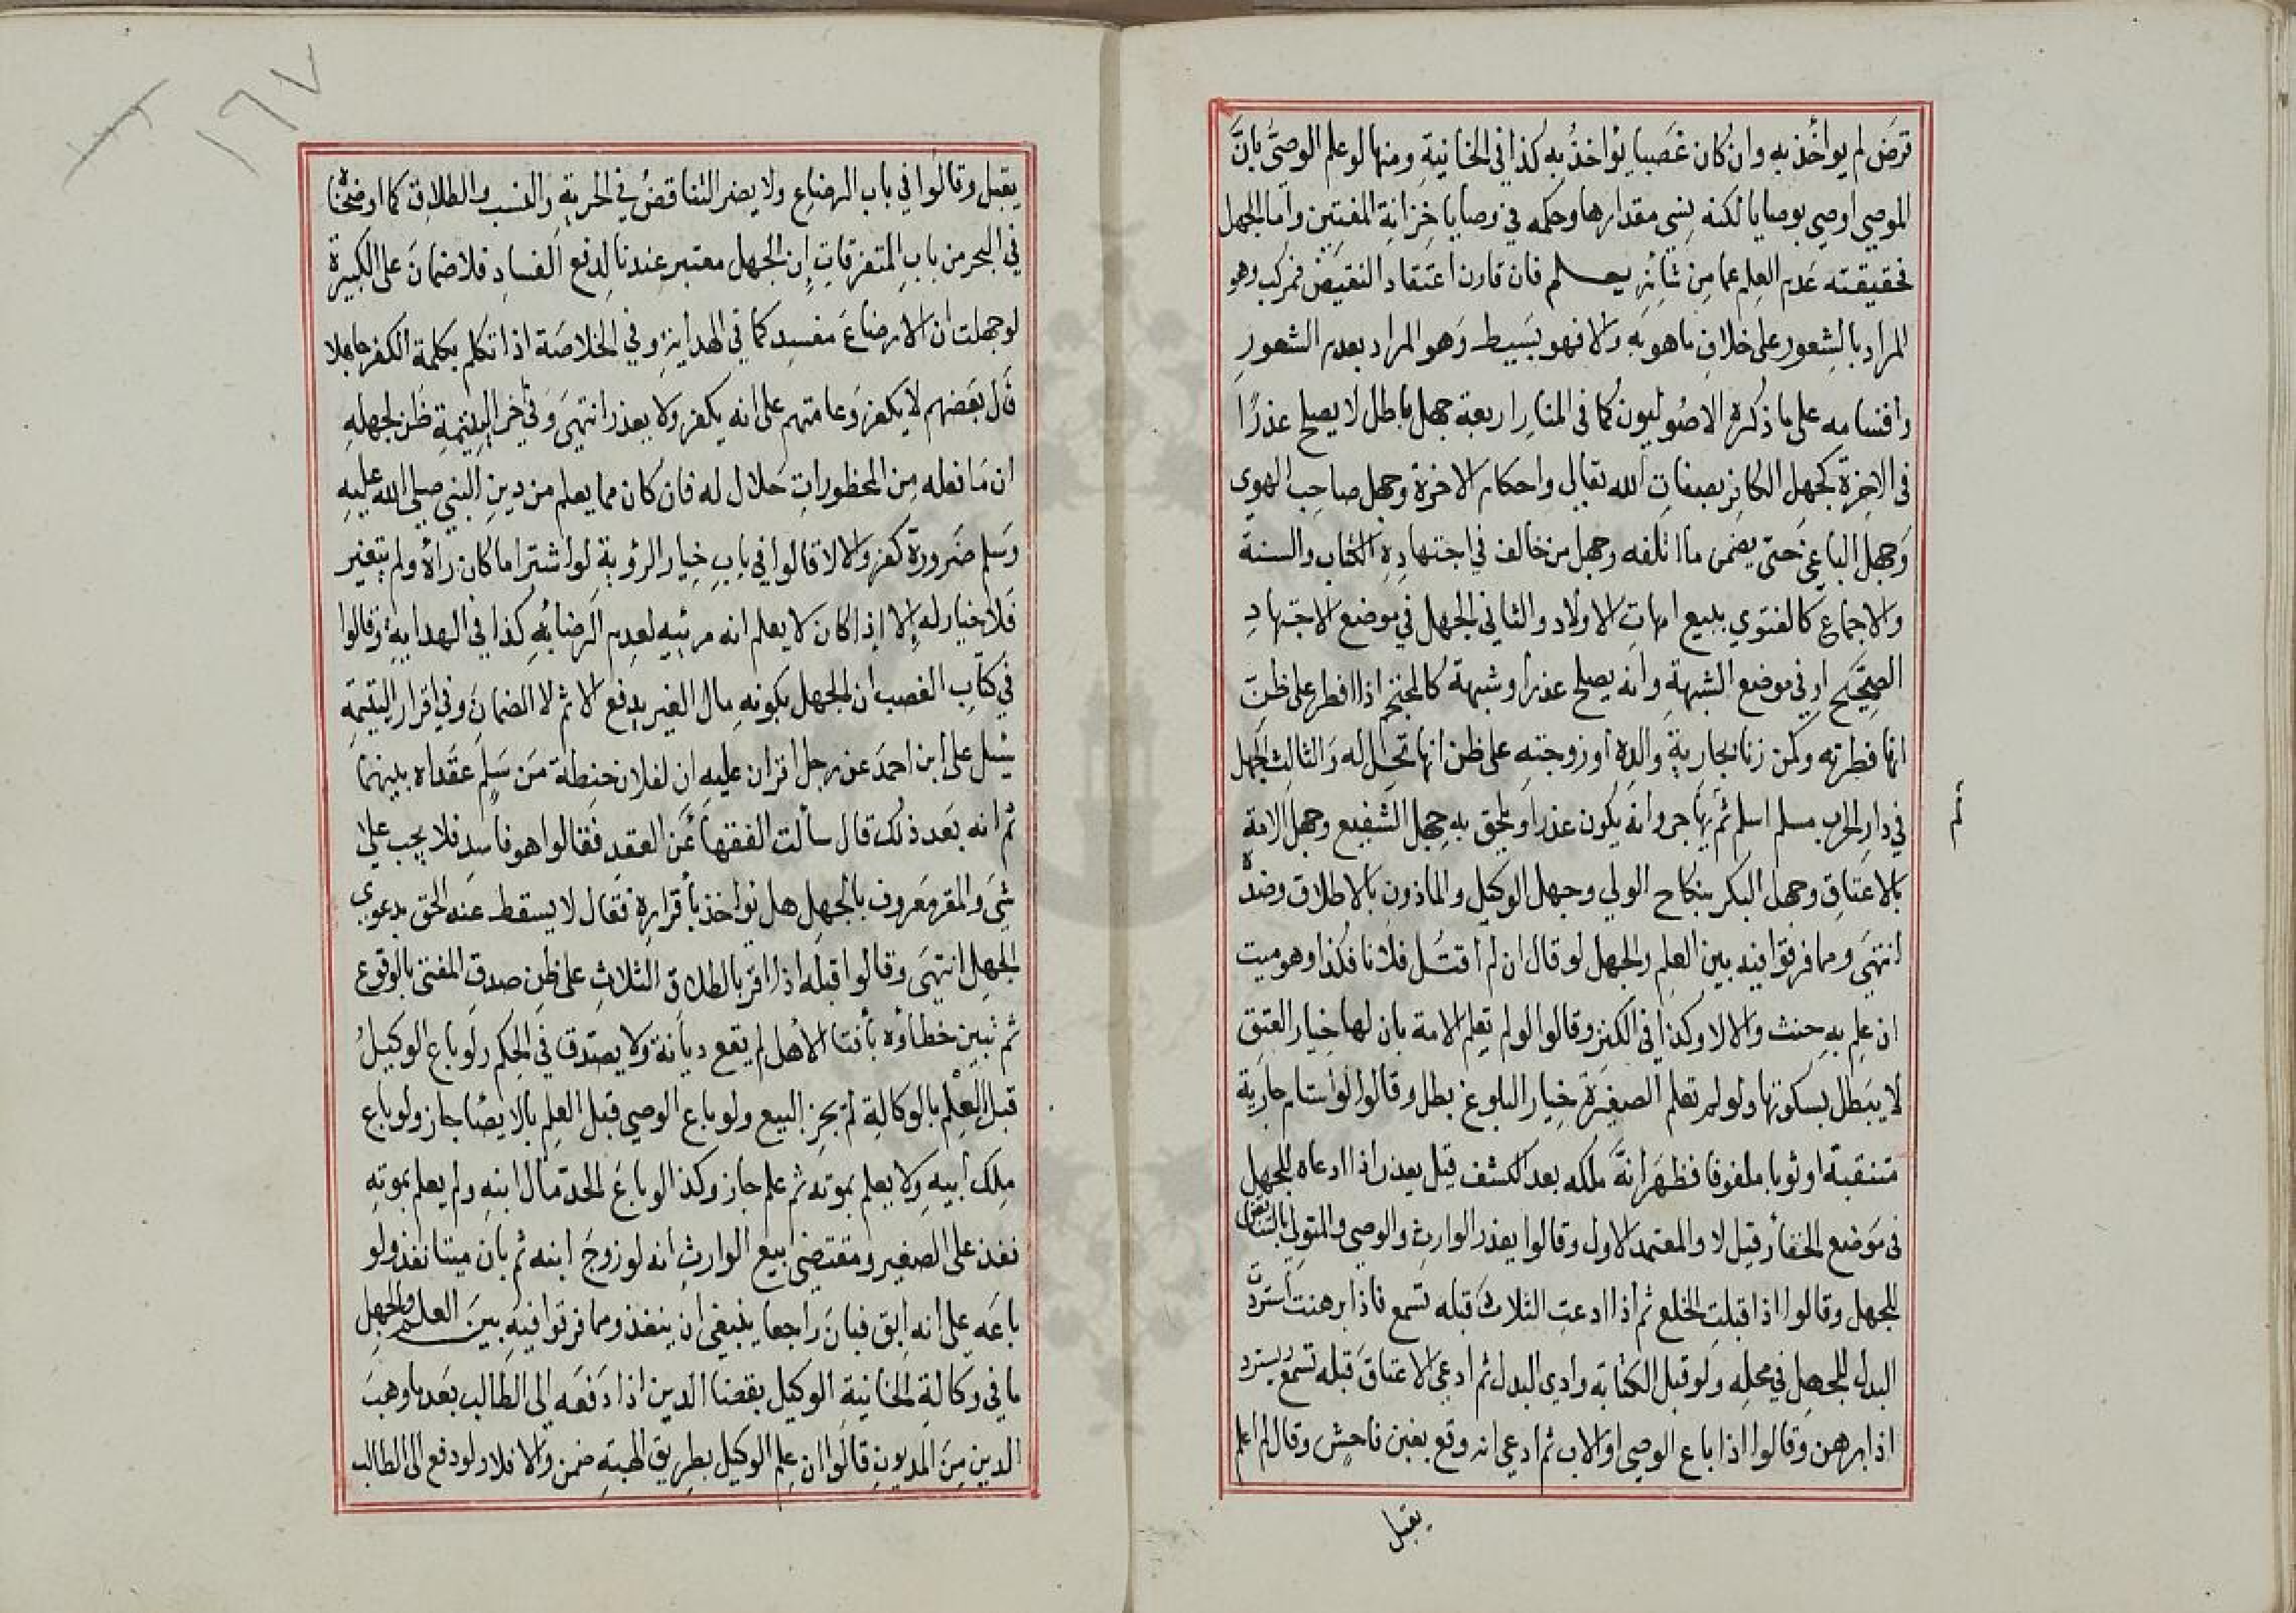 قرض لم يواخذ به وان كان غصبا يواخذ به كذا في الخانية ومنها لو علم الوصي بان
الموصي اوصي بوصايا لكنه نسي مقدارها وحكمه في وصايا خزانة المفتين واما الجهل
فحقيقته عدم العلم عما من شانه يعلم فان قارن اعتقاد النقيض فمركب وهو
المراد بالشعور على خلاف ماهو به والا فهو بسيط وهو المراد بعدم الشعور
واقسامه على ما ذكره الاصوليون كما في المنار اربعة جهل باطل لا يصلح عذرا
في الاخرة كجهل الكافر بصفات الله تعالي واحكام الاخرة وجهل صاحب الهوي
وجهل الباغي حتي يضمن ما اتلفه وجهل من خالف في اجتهاده الكتاب والسنة
والاجماع كالفتوي ببيع امهات الاولاد والثاني الجهل في موضع الاجتهاد
الصحيح او في موضع الشبهة وانه يصلح عذرا وشبهة كالمحتجم اذا افطر على ظن
انها فطرته وكمن زنا بجارية والده او زوجته على ظن انها تحل له والثالث الجهل
في دار الحرب مسلم اسلم ثم يهاجر وانه يكون عذرا ويلحق به جهل الشفيع وجهل الامة
بالاعتاق وجهل البكر بنكاح الولي وجهل الوكيل والماذون بالاطلاق وضده
انتهي ومما فرقوا فيه بين العلم والجهل لو قال ان لم اقتل فلانا فكذا وهو ميت
ان علم به حنث والا لا وكذا في الكنز وقالوا لو لم تعلم الامة بان لها خيار العتق
لا يبطل بسكوتها ولو لم تعلم الصغيرة خيار البلوغ بطل وقالوا لو استام جارية
متنقبة او ثوبا ملفوفا فظهر انه ملكه بعد الكشف قيل يعذر اذا ادعاه للجهل
في موضع الخفا وقيل لا والمعتمد الاول وقالوا يعذر الوارث والوصي والمتولي بالتناقض
للجهل وقالوا اذا قبلت الخلع ثم اذا ادعت الثلاث قبله تسمع فاذا برهنت استردت
البدل للجهل في محله ولو قبل الكتابة وادي البدل ثم ادعي الاعتاق قبله تسمع ويسترد
اذا برهن وقالوا اذا باع الوصي او الاب ثم ادعي انه وقع بغبن فاحش وقال لم اعلم
يقبل
١٦٧
يقبل وقالوا في باب الرضاع ولا يضر التناقض في الحرية والنسب والطلاق كما اوضحناه
في البحر من باب المتفرقات ان الجهل معتبر عندنا لدفع الفساد فلا ضمان على الكبيرة
لو جهلت ان الارضاع مفسد كما في الهداية وفي الخلاصة اذا تكلم بكلمة الكفر جاهلا
قال بعضهم لا يكفر وعامتهم على انه يكفر ولا يعذر انتهي وفي اخر اليتيمة ظن لجهله
ان ما فعله من المحظورات حلال له فان كان مما يعلم من دين النبي صلي الله عليه
وسلم ضرورة كفر والا لا قالوا في باب خيار الرؤية لو اشترا ما كان رأه ولم يتغير
فلا خيار له الا اذا كان لا يعلم انه مرئيه لعدم الرضا به كذا في الهداية وقالوا
في كتاب الغصب ان الجهل بكونه مال الغير يدفع الاثم لا الضمان وفي اقرار اليتيمة
سئل على ابن احمد عن رجل اقران عليه ان لفلان حنطة من سلم عقداه بينهما
ثم انه بعد ذلك قال سألت الفقها عن العقد فقالوا هو فاسد فلا يجب علي
شي والمقر معروف بالجهل هل يواخذ بأقراره فقال لا يسقط عنه الحق بدعوي
الجهل انتهي وقالوا قبله اذا اقر بالطلاق الثلاث على ظن صدق المفتي بالوقوع
ثم تبين خطاؤه بأفتا الأهل لم يقع ديانة ولا يصدق في الحكم ولو باع الوكيل
قبل العلم بالوكالة لم يجز البيع ولو باع الوصي قبل العلم بالايصا جاز ولو باع
ملك ابيه ولا يعلم بموته ثم علم جاز وكذا لو باع الجد مال ابنه ولم يعلم بموته
نفذ على الصغير ومقتضي بيع الوارث انه لو زوج ابنه ثم بان ميتا نفذ ولو
باعه على انه ابق فبان راجعا ينبغي ان ينفذ ومما فرقوا فيه بين العلم والجهل
ما في وكالة الخانية الوكيل بقضا الدين اذا دفعه الي الطالب بعد ما وهب
الدين من المديون قالوا ان علم الوكيل بطريق الهبة ضمن والا فلا ولو دفع الى الطالب